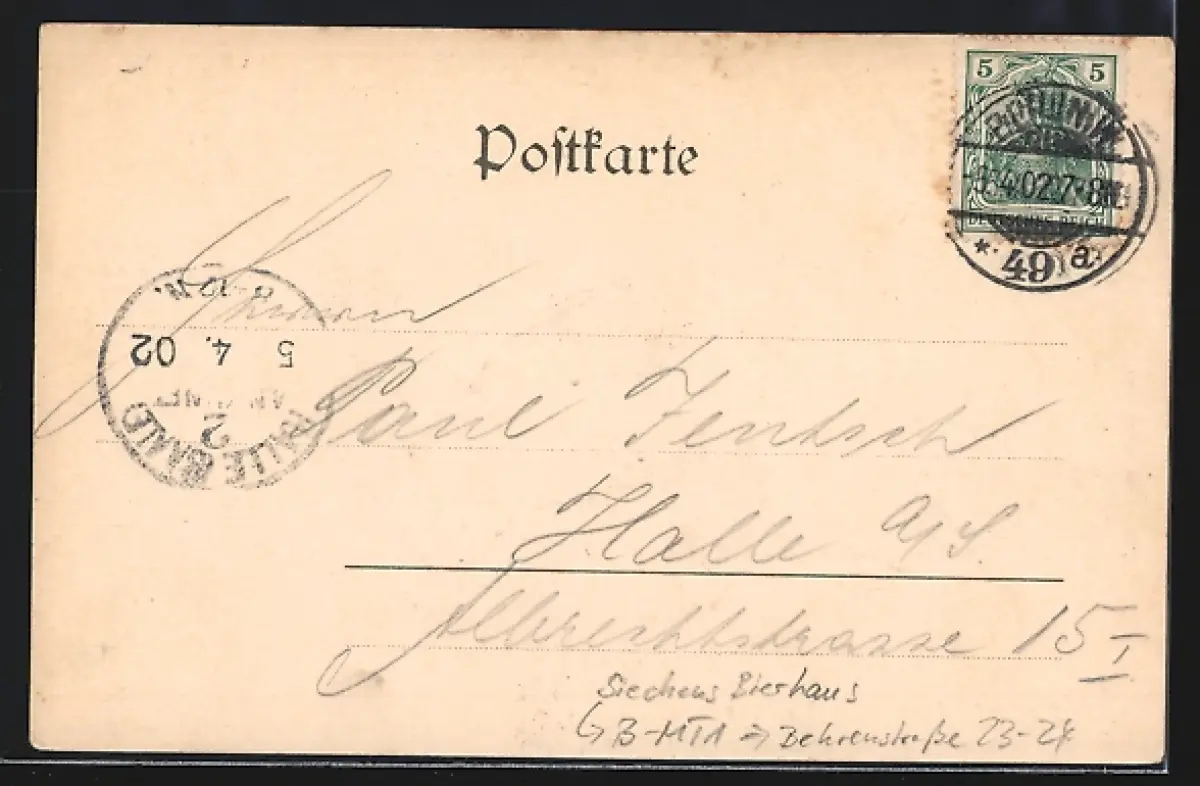 Postkarte
5 5
DEUTSCHES REICH
4.02.7-8
* 49 a
N.
5 4. 02
2
HALLE (SAALE)
Herrn
Paul Jentsch
Halle a/S.
Albrechtstrasse 15 I
Siechens Bierhaus
↳ B-MT1 => Behrenstraße 23-24